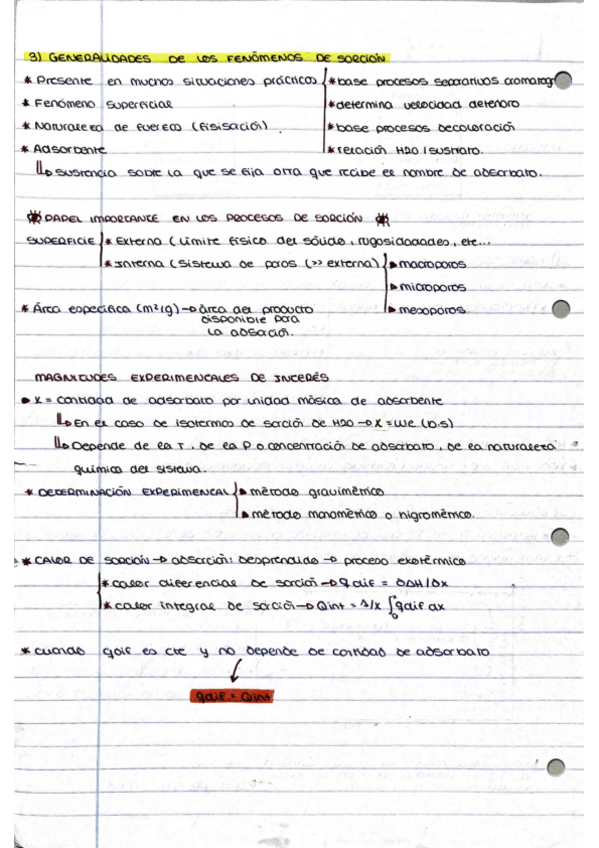 3) GENERALIDADES DE LOS FENÓMENOS DE SORCIÓN
* Presente en muchas situaciones prácticas * base procesos separativos cromatog
* Fenómeno superficial * determina velocidad deterioro
* Naturaleza de fuerza (fisisación) * base procesos decoloración
* Adsorbente * relación H2O/sustrato.
↳ sustancia sobre la que se fija otra que recibe el nombre de adsorbato.
* PAPEL IMPORTANTE EN LOS PROCESOS DE SORCIÓN *
SUPERFICIE * Externa (límite físico del sólido, rugosidades, etc...
* Interna (sistema de poros (>> externa) ▸ macroporos
▸ microporos
* Área específica (m²/g) → área del producto ▸ mesoporos.
disponible para
la adsoción.
MAGNITUDES EXPERIMENTALES DE INTERÉS
▸ X = cantidad de adsorbato por unidad másica de adsorbente
↳ En el caso de isotermas de sorción de H2O → X = We (b.s)
↳ Depende de la T, de la P o concentración de adsorbato, de la naturaleza
química del sistema.
* DETERMINACIÓN EXPERIMENTAL ▸ método gravimétrico
▸ método manométrico o higrométrico.
* CALOR DE SORCIÓN → adsorción: desprendido → proceso exotérmico
* calor diferencial de sorción → qdif = ∂ΔH/∂x
* calor integral de sorción → Qint = 1/x ∫₀ qdif dx
* cuando qdif es cte y no depende de cantidad de adsorbato
↓
qdif = Qint